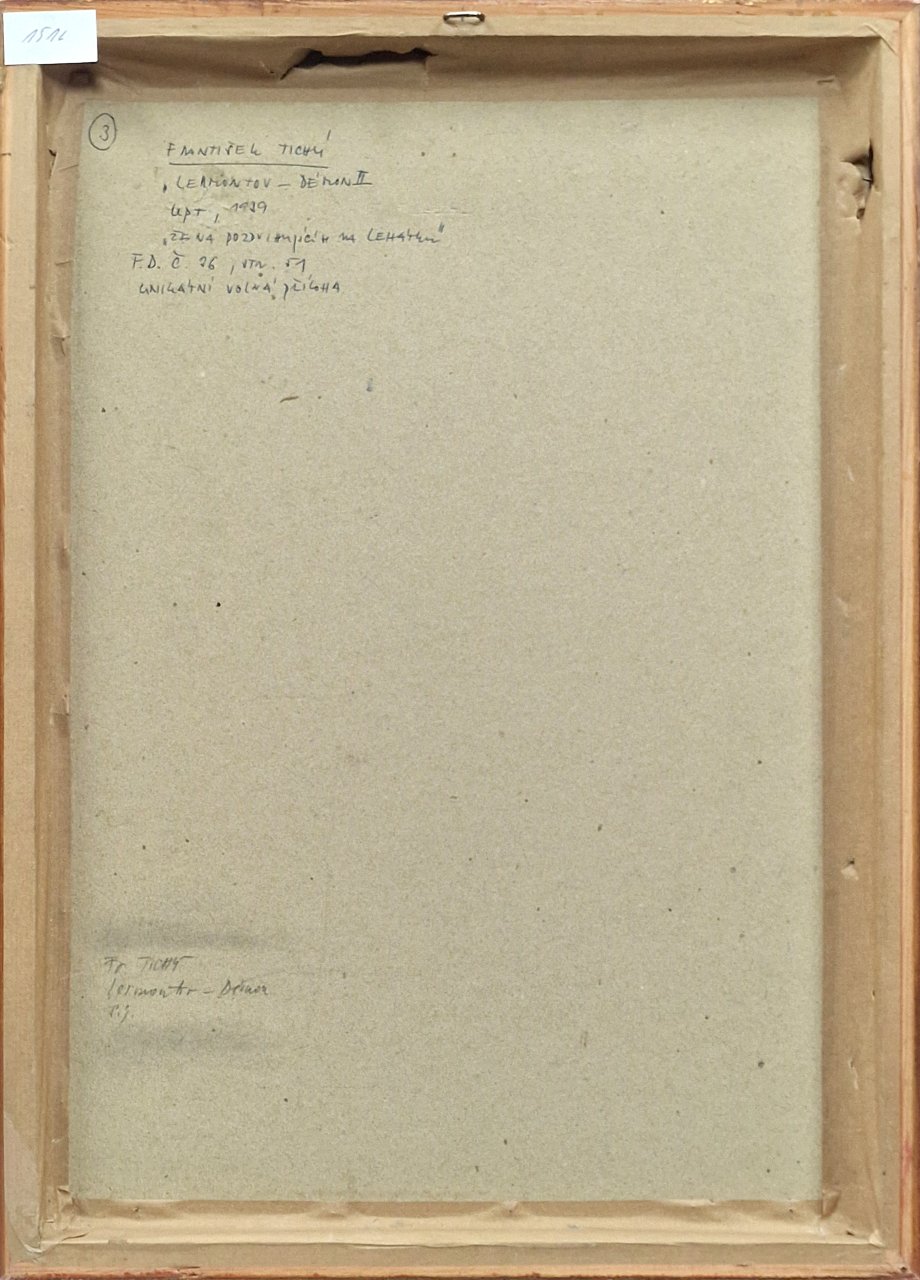 1516
3
FRANTIŠEK TICHÝ
„LERMONTOV – DÉMON II
lept, 1939
„ŽENA NA LEHÁTKU"
F.D. Č. 26, str. 51
UNIKÁTNÍ VOLNÁ PŘÍLOHA
Fr TICHÝ
Lermontov – Démon